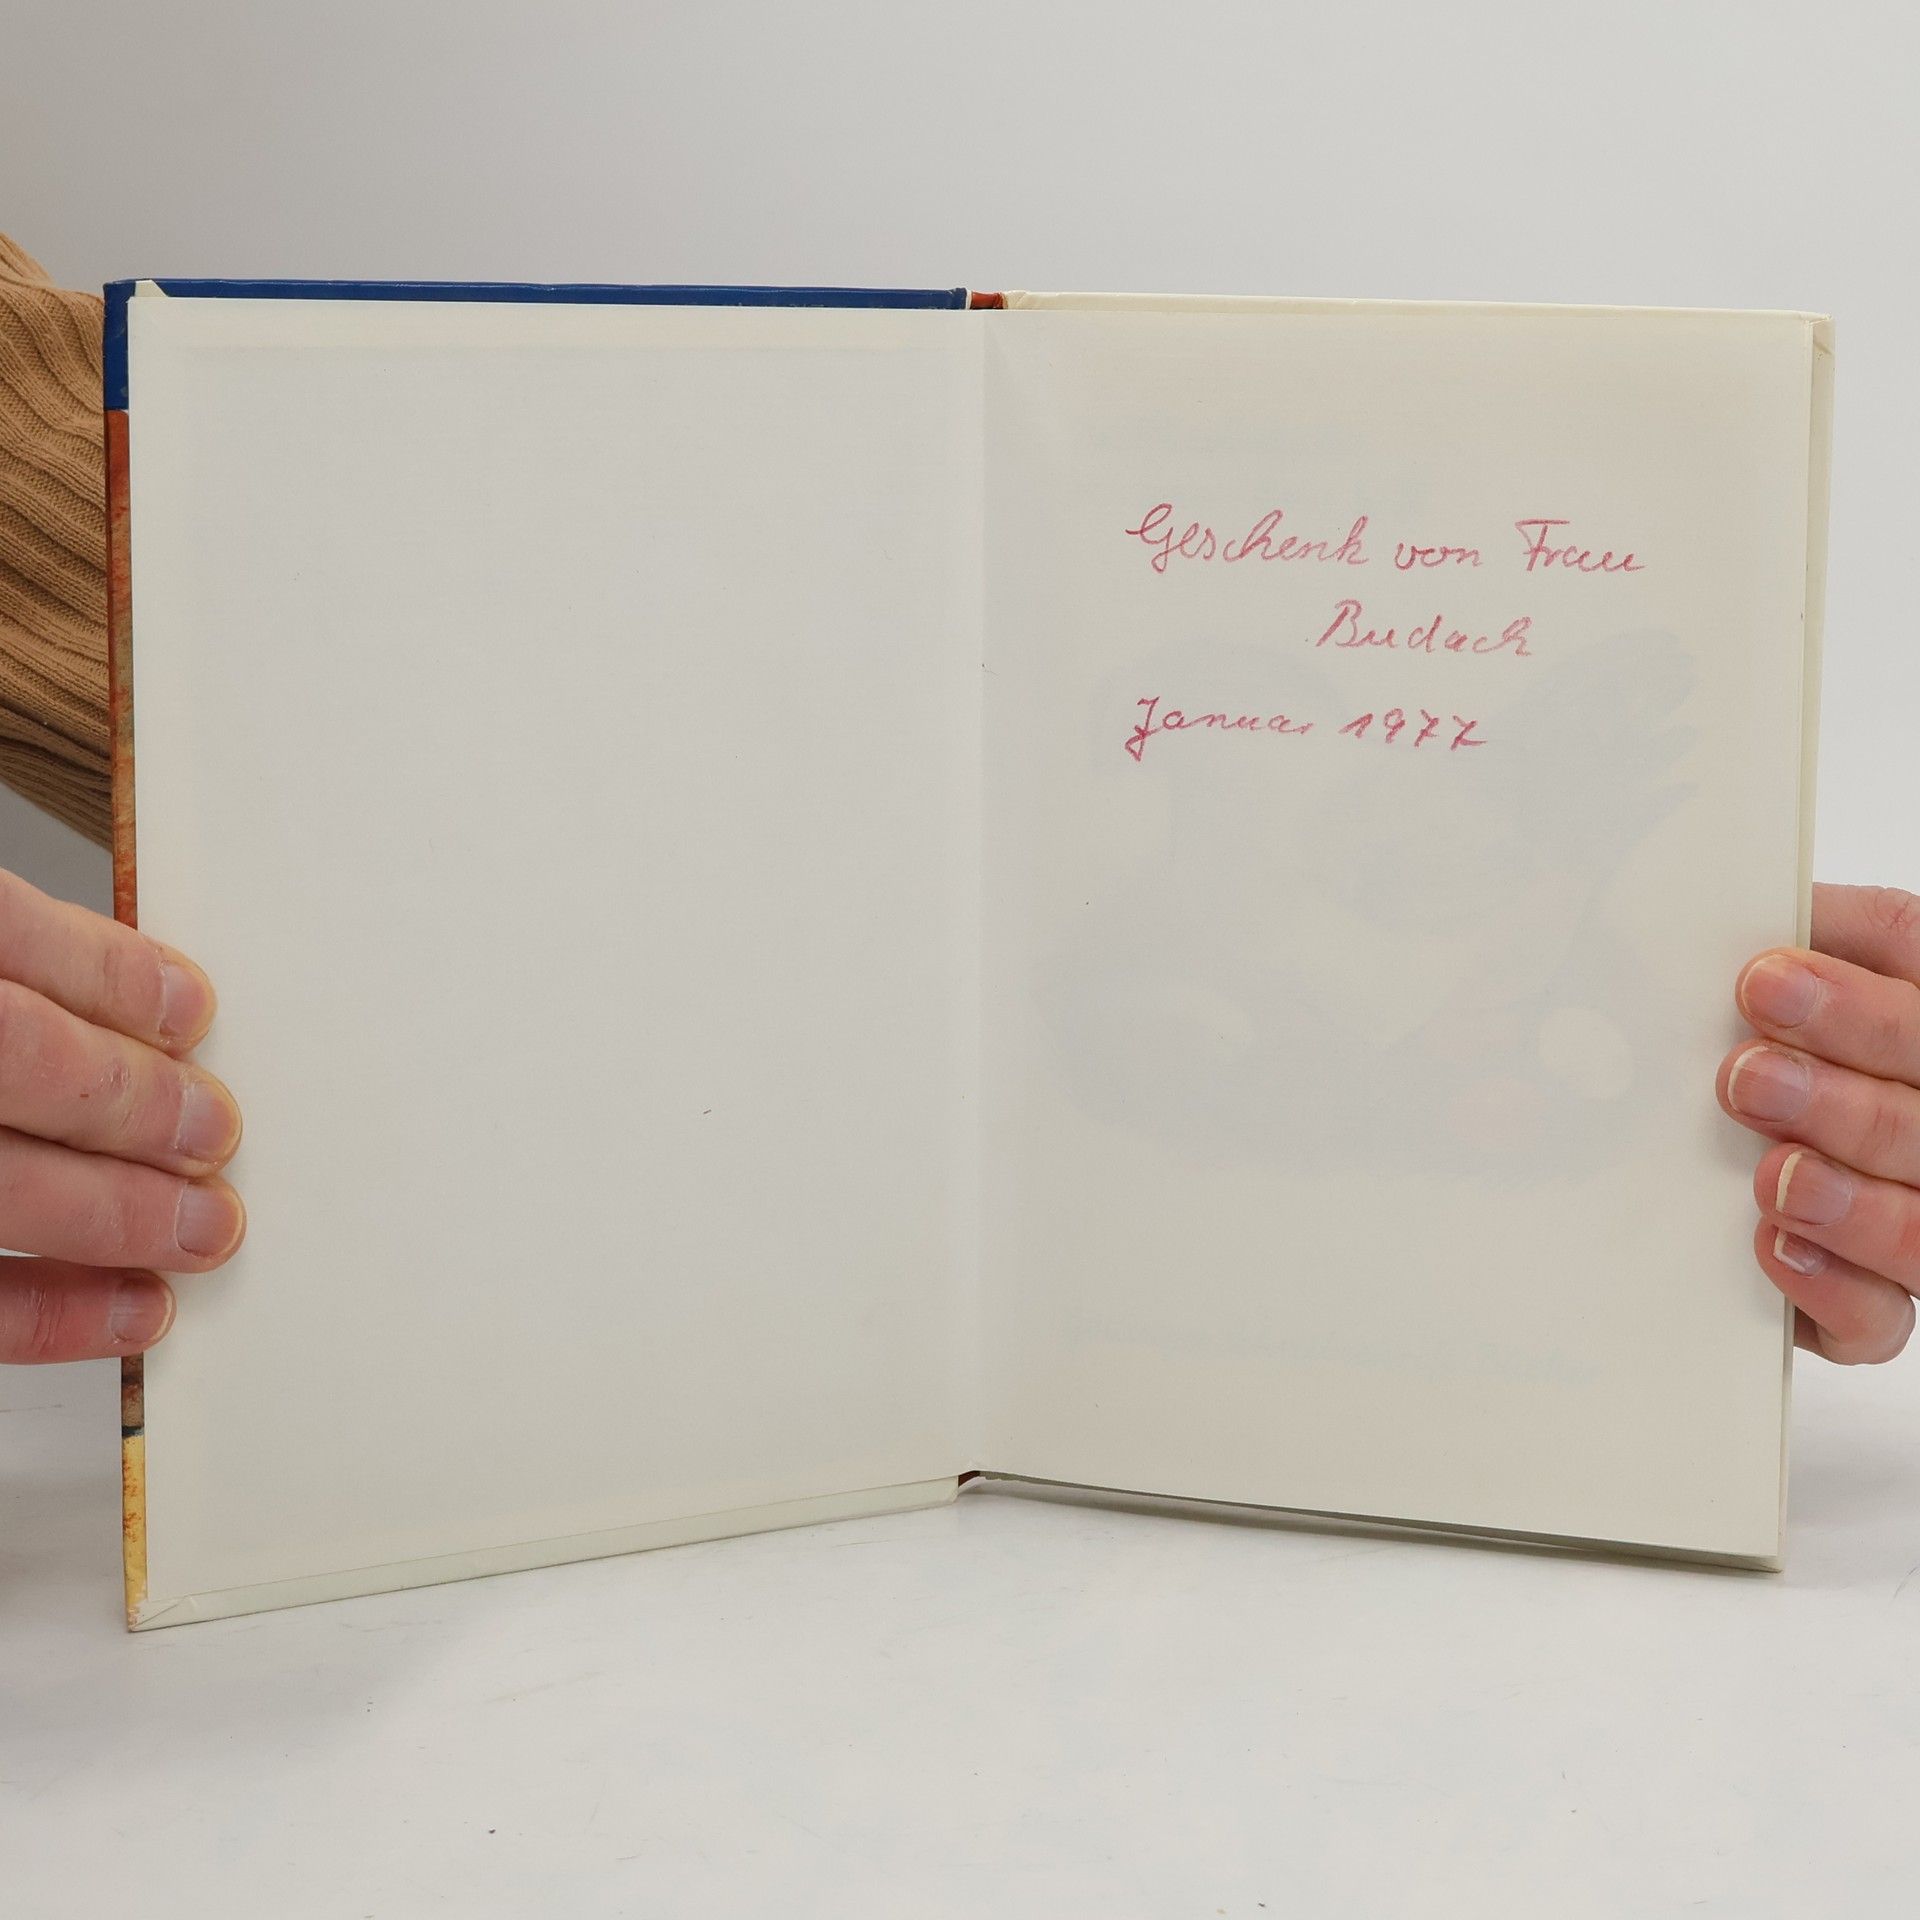 Geschenk von Frau
Budach
Januar 1977